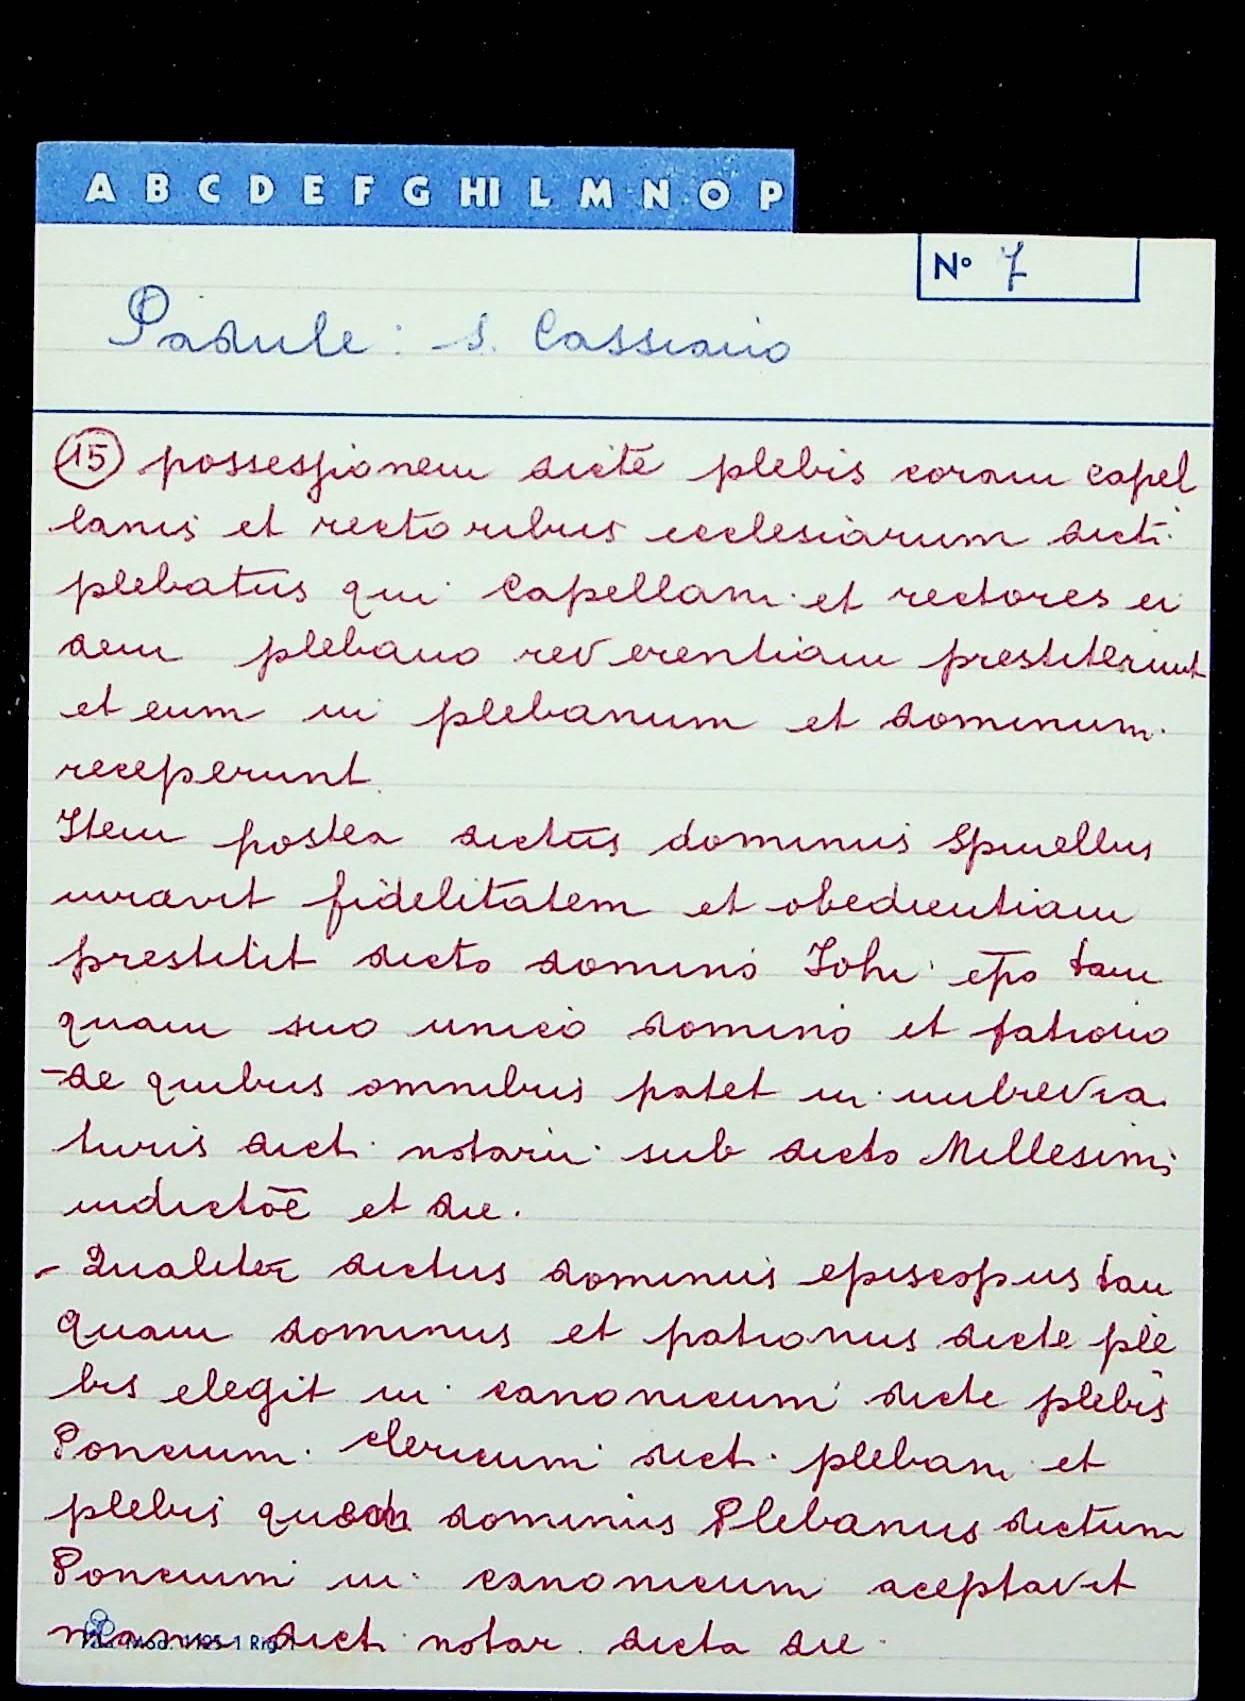 A B C D E F G HI L M N O P
N° 7
Padule: S. Cassiano
15 possessionem dicte plebis coram capel
lanis et rectoribus ecclesiarum dicti
plebatus qui capellani et rectores ei
dem plebano reverentiam prestiterunt
et eum in plebanum et dominum
receperunt.
Item postea dictus dominus Spinellus
iuravit fidelitatem et obedientiam
prestitit dicto domino Iohi epō tan
quam suo unico domino et patrono
-de quibus omnibus patet in imbrevia
turis dicti notarii sub dicto Millesimi
indictōe et die.
- Qualiter dictus dominus episcopus tan
quam dominus et patronus dicte ple
bis elegit in canonicum dicte plebis
Poncium clericum dicti plebani et
plebis dominus Plebanus dictum
Poncium in canonicum aceptavit
manu dicti notar. dicta die.